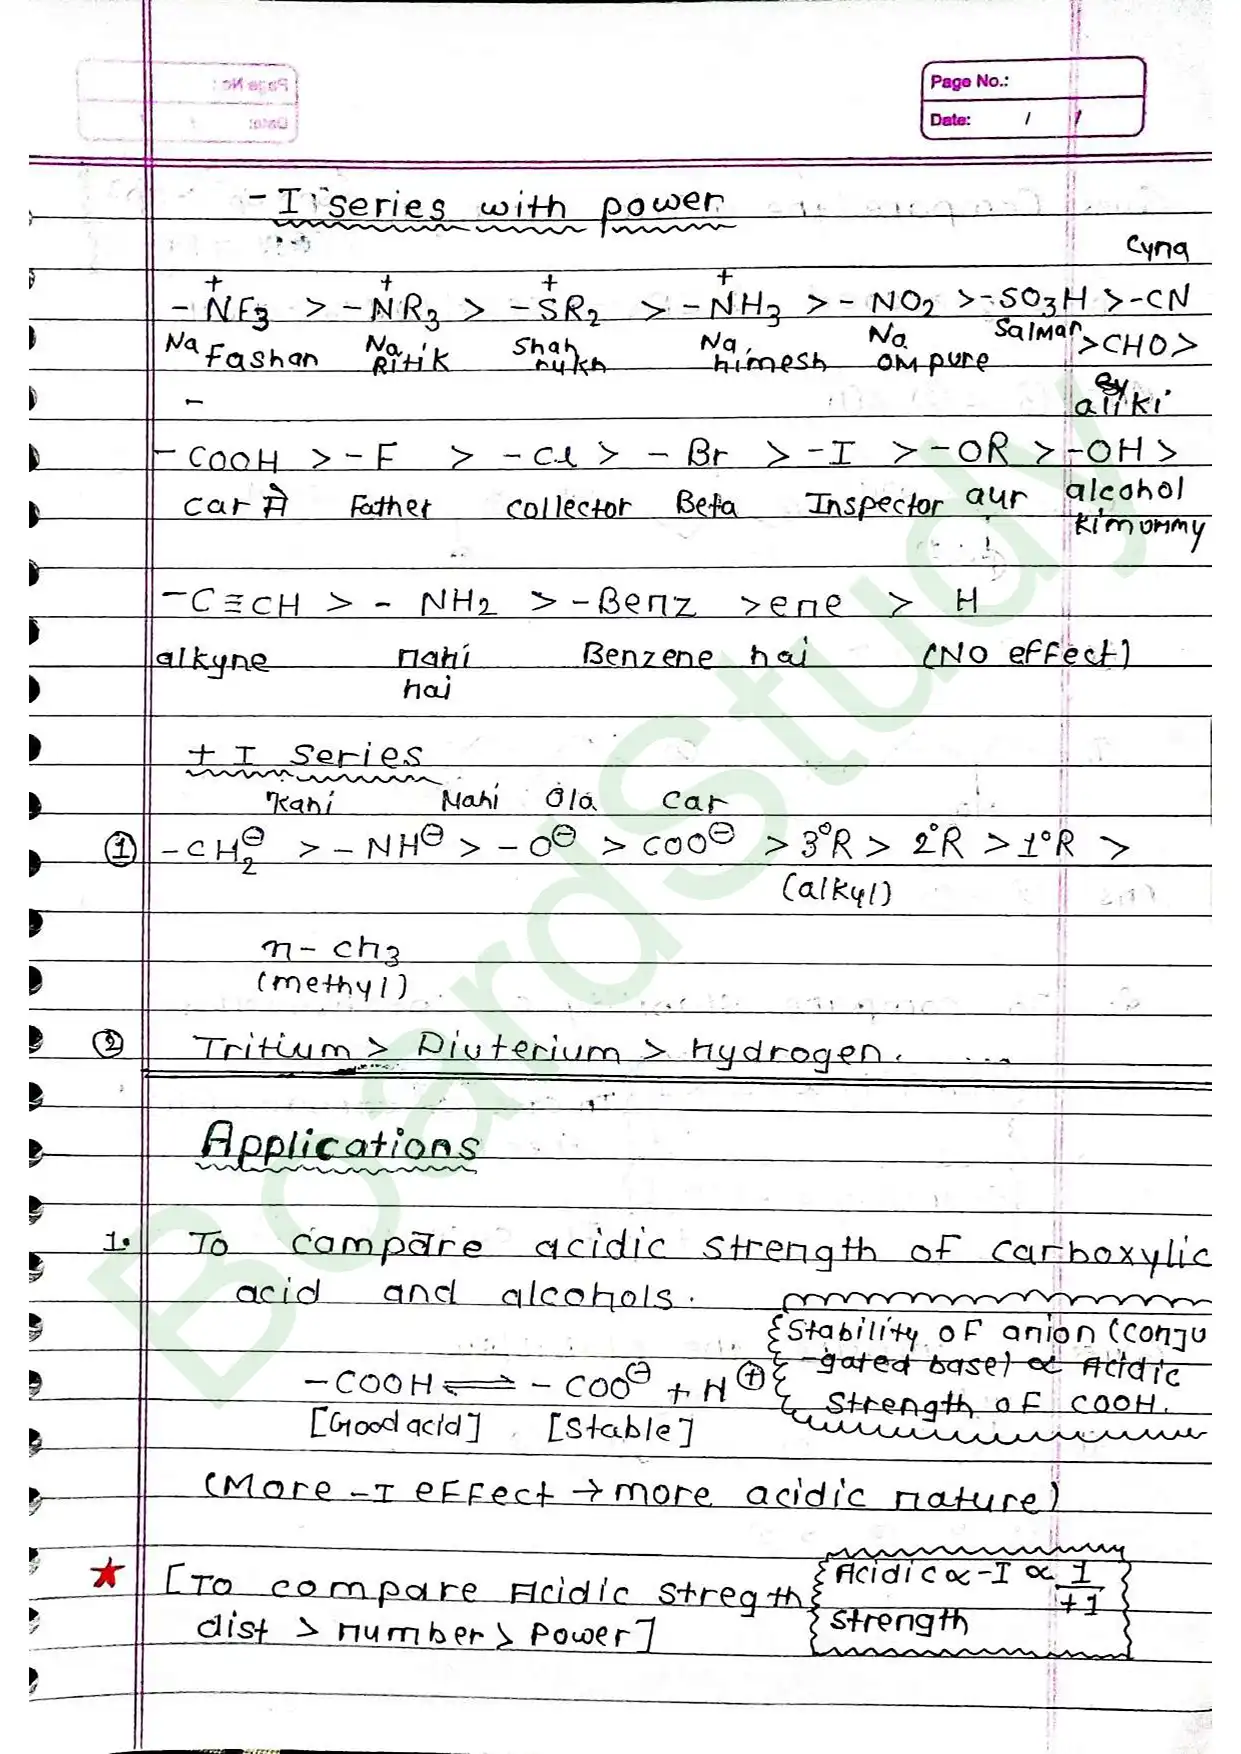 Page No.:
Date: / /
- I series with power
Cyna
-N⁺F3 > -N⁺R3 > -S⁺R2 > -N⁺H3 > - NO2 > -SO3H > -CN
Na Fashan Na Ritik Shah rukh Na himesh Na OM pure Salman >CHO>
-
aliki
-COOH > -F > -Cl > - Br > -I > -OR > -OH >
car A Father collector Beta Inspector aur alcohol
ki mummy
-C≡CH > - NH2 > -Benz >ene > H
alkyne nahi Benzene hai (NO effect)
hai
+ I series
Kahi Nahi Ola car
① -CH2⊖ > -NH⊖ > -O⊖ > COO⊖ > 3°R > 2°R > 1°R >
(alkyl)
n- CH3
(methyl)
② Tritium > Diuterium > Hydrogen. ...
Applications
1. To compare acidic strength of carboxylic
acid and alcohols.
Stability of anion (conju
-gated base) ∝ Acidic
Strength of COOH.
-COOH ⇌ -COO⊖ + H⊕
[Good acid] [Stable]
(More -I effect → more acidic nature)
★ [To compare Acidic stregth
dist > number > Power]
Acidic ∝ -I ∝ 1/+1
strength
BoardStudy